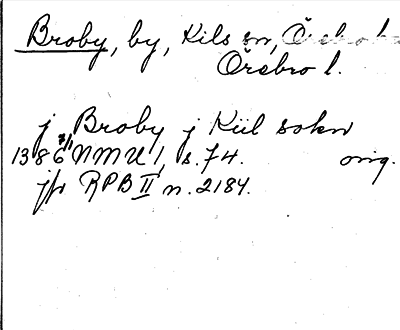 Broby, by, Kils sn, Örebro
Örebro l.
j Broby j Kiil sokn
1386 7/11 NMU 1, s. 74. orig.
jfr RPB II n. 2184.